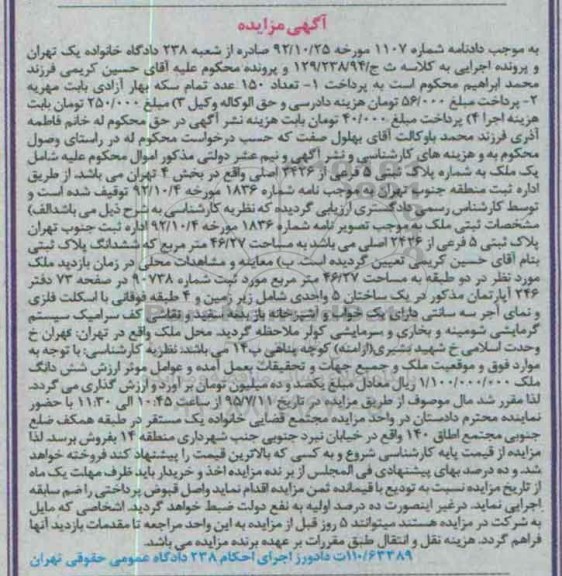 آگهی مزایده
به موجب دادنامه شماره ۱۱۰۷ مورخه ۹۲/۱۰/۲۵ صادره از شعبه ۲۳۸ دادگاه خانواده یک تهران
و پرونده اجرایی به کلاسه ث ج/۱۲۹/۲۳۸/۹۴ و پرونده محکوم علیه آقای حسین کریمی فرزند
محمد ابراهیم محکوم است به پرداخت ۱- تعداد ۱۵۰ عدد تمام سکه بهار آزادی بابت مهریه
۲- پرداخت مبلغ ۵۶/۰۰۰ تومان هزینه دادرسی و حق الوکاله وکیل ۳) مبلغ ۲۵۰/۰۰۰ تومان بابت
هزینه اجرا ۴) پرداخت مبلغ ۴۰/۰۰۰ تومان بابت هزینه نشر آگهی در حق محکوم له خانم فاطمه
آذری فرزند محمد باوکالت آقای بهلول صفت که حسب درخواست محکوم له در راستای وصول
محکوم به و هزینه های کارشناسی و نشر آگهی و نیم عشر دولتی مذکور اموال محکوم علیه شامل
یک ملک به شماره پلاک ثبتی ۵ فرعی از ۲۴۲۶ اصلی واقع در بخش ۴ تهران می باشد. از طریق
اداره ثبت منطقه جنوب تهران و به موجب نامه شماره ۱۸۳۶ مورخه ۹۲/۱۰/۴ توقیف شده است و
توسط کارشناس رسمی دادگستری ارزیابی گردیده که نظریه کارشناسی به شرح ذیل می باشدالف)
مشخصات ثبتی ملک به موجب تصویر نامه شماره ۱۸۳۶ مورخه ۹۲/۱۰/۴ اداره ثبت جنوب تهران
پلاک ثبتی ۵ فرعی از ۲۴۲۶ اصلی می باشد به مساحت ۴۶/۲۷ متر مربع که ششدانگ پلاک ثبتی
بنام آقای حسین کریمی تعیین گردیده است. ب) معاینه و مشاهدات محلی در زمان بازدید ملک
مورد نظر در دو طبقه به مساحت ۴۶/۲۷ متر مربع مورد ثبت شماره ۹۰۷۳۸ در صفحه ۷۳ دفتر
۲۴۶ آپارتمان مذکور در یک ساختان ۵ واحدی شامل زیر زمین و ۴ طبقه فوقانی با اسکلت فلزی
و نمای آجر سه سانتی دارای یک خواب و آشپزخانه باز بدنه سفید و نقاشی کف سرامیک سیستم
گرمایشی شومینه و بخاری و سرمایشی کولر ملاحظه گردید. محل ملک واقع در تهران: تهران خ
وحدت اسلامی خ شهید بشیری(ارامنه) کوچه پناهی پ۱۴ می باشد: نظریه کارشناسی: با توجه به
موارد فوق و موقعیت ملک و جمیع جهات و تحقیقات بعمل آمده و عوامل موثر ارزش شش دانگ
ملک ۱/۱۰۰/۰۰۰/۰۰۰ ریال معادل مبلغ یکصد و ده میلیون تومان بر آورد و ارزش گذاری می گردد.
لذا مقرر شد مال موصوف از طریق مزایده در تاریخ ۹۵/۷/۱۱ از ساعت ۱۰:۴۵ الی ۱۱:۳۰ با حضور
نماینده محترم دادستان در واحد مزایده مجتمع قضایی خانواده یک مستقر در طبقه همکف ضلع
جنوبی مجتمع اطاق ۱۴۰ واقع در خیابان نبرد جنوبی جنب شهرداری منطقه ۱۴ بفروش برسد. لذا
مزایده از قیمت پایه کارشناسی شروع و به کسی که بالاترین قیمت را پیشنهاد کند فروخته خواهد
شد. و ده درصد بهای پیشنهادی فی المجلس از بر نده مزایده اخذ و خریدار باید ظرف مهلت یک ماه
از تاریخ مزایده نسبت به تودیع با قیمانده ثمن مزایده اقدام نماید واصل قبوض پرداختی را ضم سابقه
اجرایی نماید. درغیر اینصورت ده درصد اولیه به نفع دولت ضبط خواهد گردید. اشخاصی که مایل
به شرکت در مزایده هستند میتوانند ۵ روز قبل از مزایده به این واحد مراجعه تا مقدمات بازدید آنها
فراهم گردد. هزینه نقل و انتقال طبق مقررات بر عهده برنده مزایده می باشد.
۱۱۰/۶۳۴۸۹ت دادورز اجرای احکام ۲۳۸ دادگاه عمومی حقوقی تهران